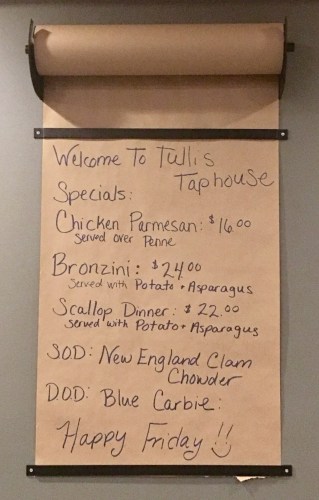 Welcome To Tullis
Taphouse
Specials:
Chicken Parmesan: $16.00
Served over Penne
Bronzini: $24.00
Served with Potato + Asparagus
Scallop Dinner: $22.00
Served with Potato + Asparagus
SOD: New England Clam
Chowder
DOD: Blue Carbie:
Happy Friday!!